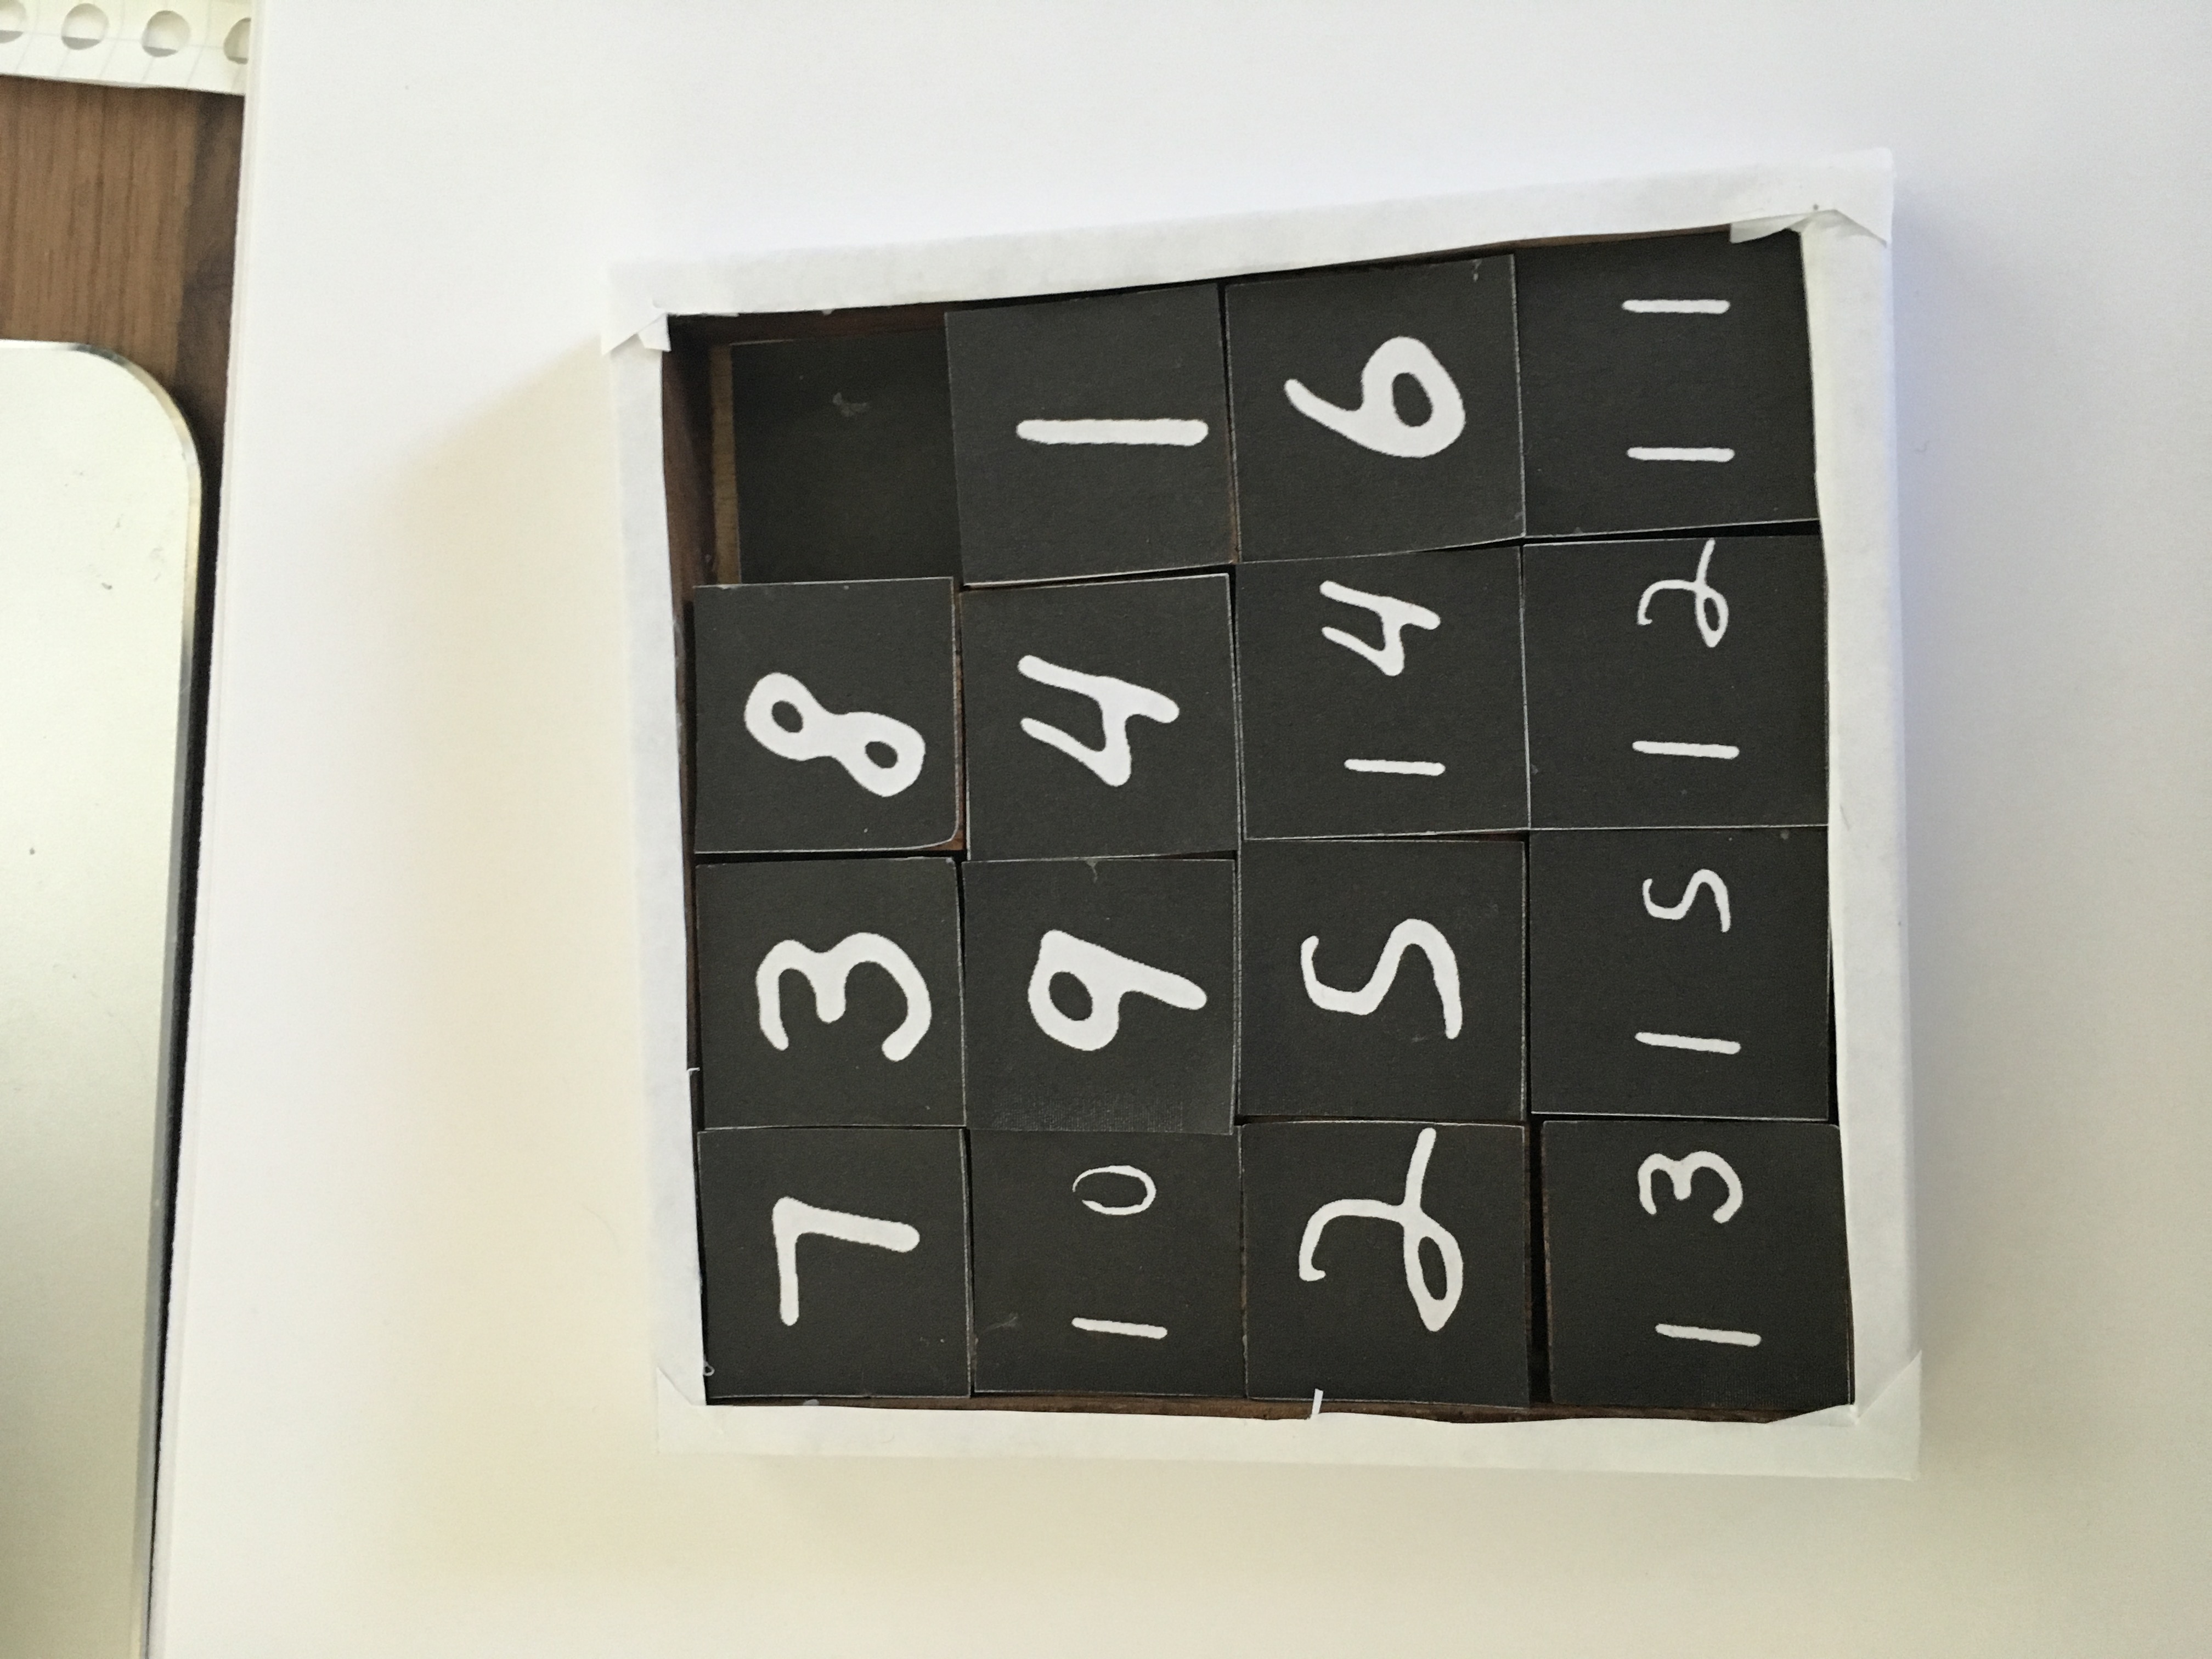 7 3 8
10 9 4 1
2 5 14 6
13 15 12 11